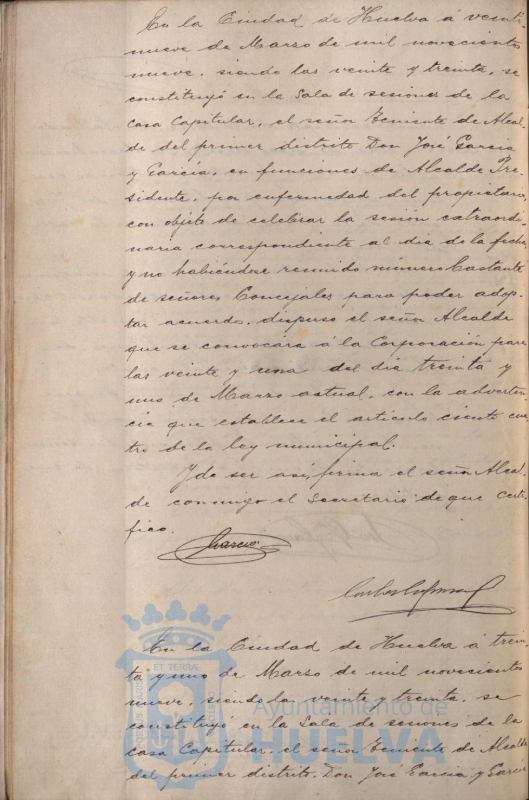 En la Ciudad de Huelva á veinti-
nueve de Marzo de mil novecientos
nueve, siendo las veinte y treinta, se
constituyó en la Sala de sesiones de la
Casa Capitular, el señor Teniente de Alcal-
de del primer distrito Don José Garcia
y Garcia, en funciones de Alcalde Pre-
sidente, por enfermedad del propietario,
con objeto de celebrar la sesión extraordi-
naria correspondiente al dia de la fecha
y no habiéndose reunido número bastante
de señores Concejales para poder adop-
tar acuerdos, dispuso el señor Alcalde
que se convocára á la Corporación para
las veinte y una del dia treinta y
uno de Marzo actual, con la adverten-
cia que establece el articulo ciento cua-
tro de la ley municipal.
Y de ser asi, firma el señor Alcal-
de conmigo el Secretario de que certi-
fico.
Garcia
En la Ciudad de Huelva á trein-
ta y uno de Marzo de mil novecientos
nueve, siendo la veinte y treinta, se
constituyó en la Sala de sesiones de la
casa Capitular, el señor Teniente de Alcalde
del primer distrito, Don José Garcia y Garcia
ET TERRÆ
Ayuntamiento de
HUELVA